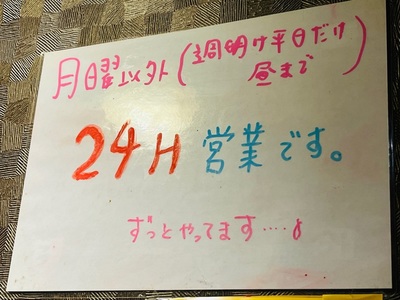 月曜以外(週明け平日だけ
昼まで)
24H営業です。
ずっとやってます‥‥♪